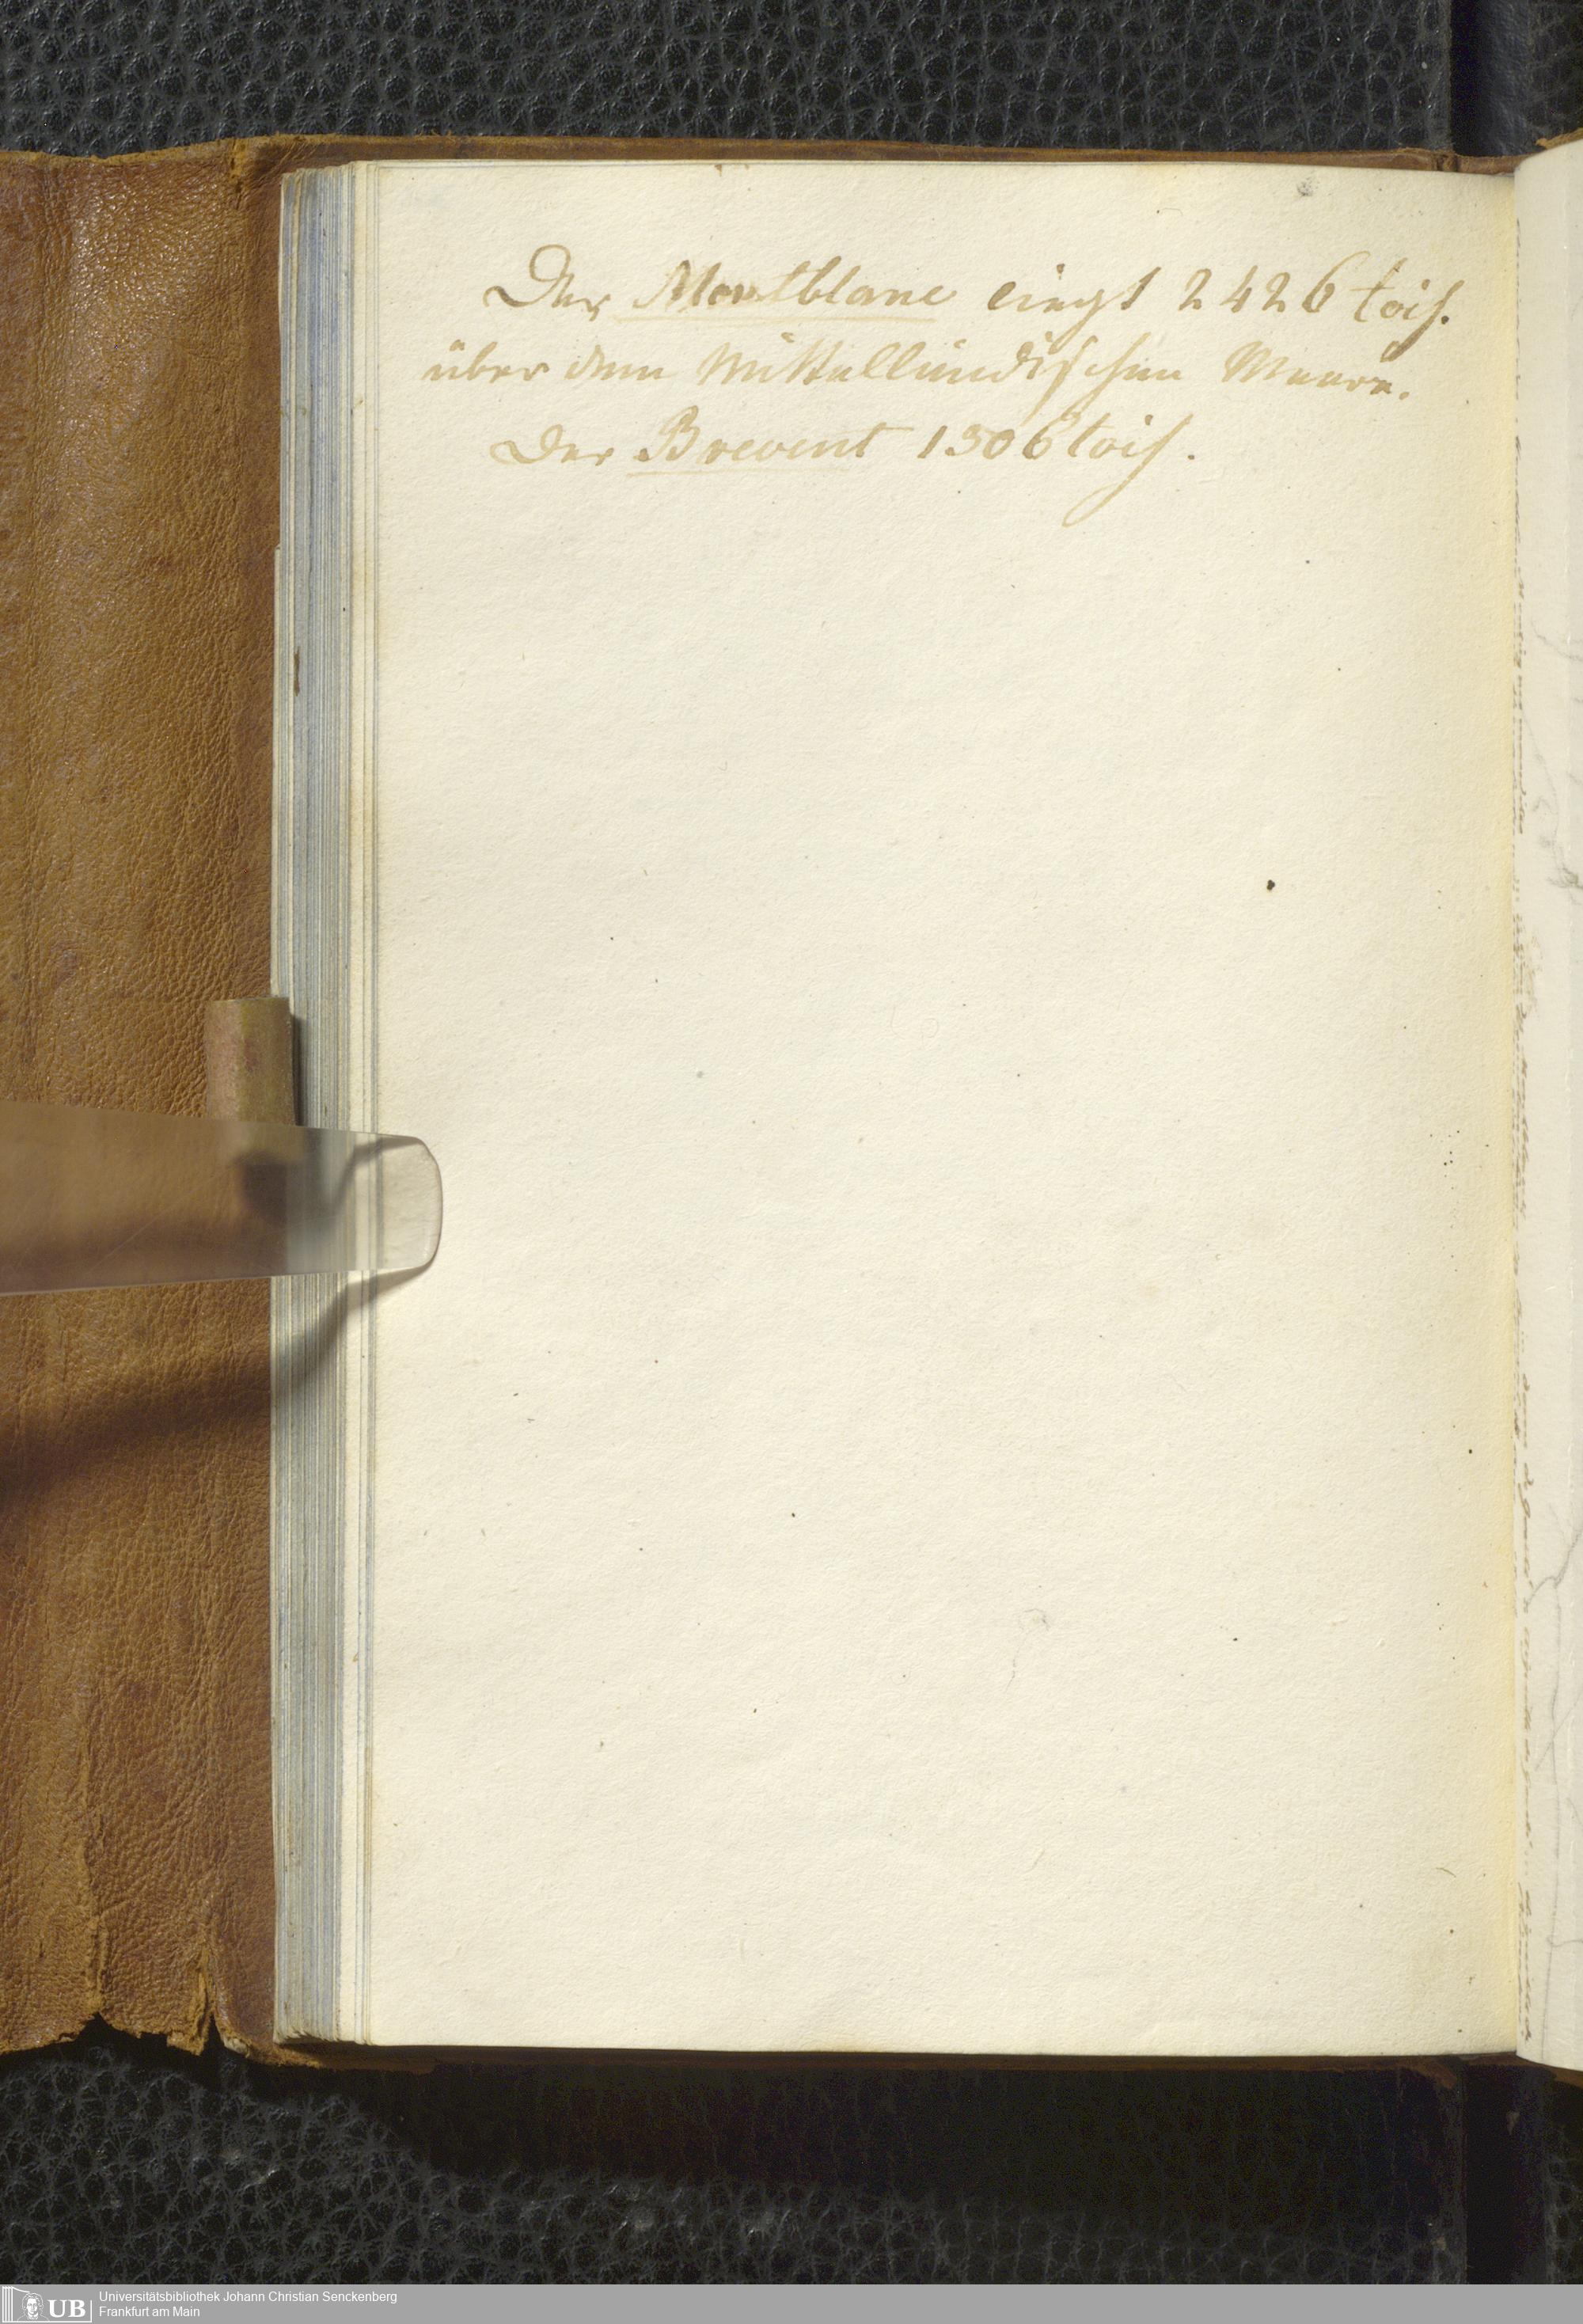 Der Montblanc liegt 2426 tois.
über dem Mittelländischen Meere.
Der Brevent 1306 tois.
UB
Universitätsbibliothek Johann Christian Senckenberg
Frankfurt am Main